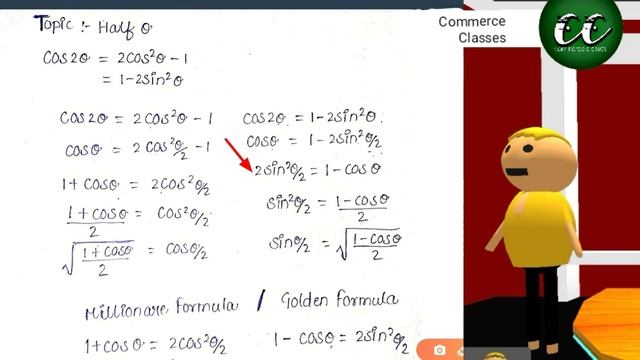 Topic :- Half θ
Cos2θ = 2cos²θ - 1
= 1-2sin²θ
Cos2θ = 2cos²θ - 1
Cosθ = 2cos²θ/2 - 1
1+cosθ = 2cos²θ/2
1+cosθ/2 = cos²θ/2
√1+cosθ/2 = cosθ/2
Cos2θ = 1-2sin²θ
Cosθ = 1-2sin²θ/2
2sin²θ/2 = 1-cosθ
sin²θ/2 = 1-cosθ/2
sinθ/2 = √1-cosθ/2
Millionare formula / Golden formula
1+cosθ = 2cos²θ/2
1-cosθ = 2sin²θ/2
Commerce
Classes
CC